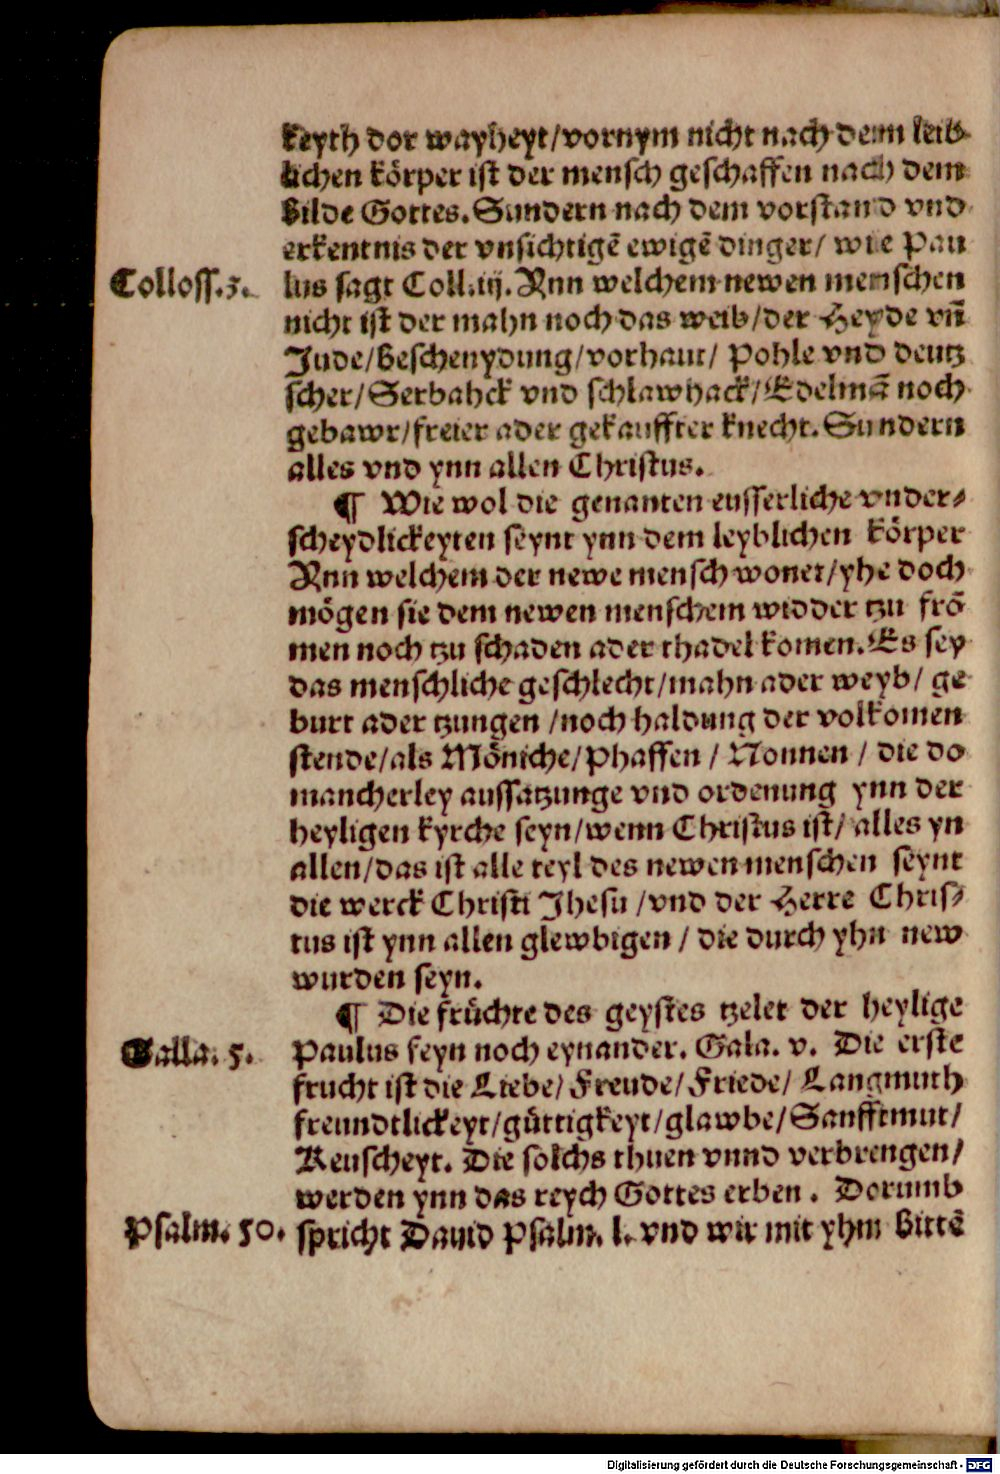 keyth dor wayheyt/vornym nicht nach dem leib-
lichen körper ist der mensch geschaffen nach dem
Bilde Gottes. Sundern nach dem vorstand vnd
erkentnis der vnsichtigē ewigē dinger/ wie Pau
Colloss.3. lus sagt Coll.iij. Ynn welchem newen menschen
nicht ist der mahn noch das weib/der Heyde vn̄
Jude/Beschenydung/vorhaut/ Pohle vnd deutz
scher/Serbahck vnd schlawhack/Edelmā noch
gebawr/freier ader gekauffter knecht. Sundern
alles vnd ynn allen Christus.
¶ Wie wol die genanten eusserliche vnder-
scheydlickeyten seynt ynn dem leyblichen körper
Ynn welchem der newe mensch wonet/yhe doch
mögen sie dem newen menschem widder tzu frō
men noch tzu schaden ader thadel komen. Es sey
das menschliche geschlecht/mahn ader weyb/ ge
burt ader tzungen /noch haldung der volkomen
stende/als Möniche/Phaffen / Nonnen / die do
mancherley aussatzunge vnd ordenung ynn der
heyligen kyrche seyn/wenn Christus ist/ alles yn
allen/das ist alle teyl des newen menschen seynt
die werck Christi Jhesu /vnd der Herre Chris-
tus ist ynn allen glewbigen / die durch yhn new
wurden seyn.
¶ Die früchte des geystes tzelet der heylige
Galla. 5. Paulus seyn noch eynander. Gala. v. Die erste
frucht ist die Liebe/ Freude/ Friede/ Langmuth
freundtlickeyt/güttigkeyt/glawbe/Sanfftmut/
Keuscheyt. Die solchs thuen vnnd verbrengen/
werden ynn das reych Gottes erben . Dorumb
Psalm. 50. spricht Dauid Psalm. l. vnd wir mit yhm Bittē
Digitalisierung gefördert durch die Deutsche Forschungsgemeinschaft - DFG